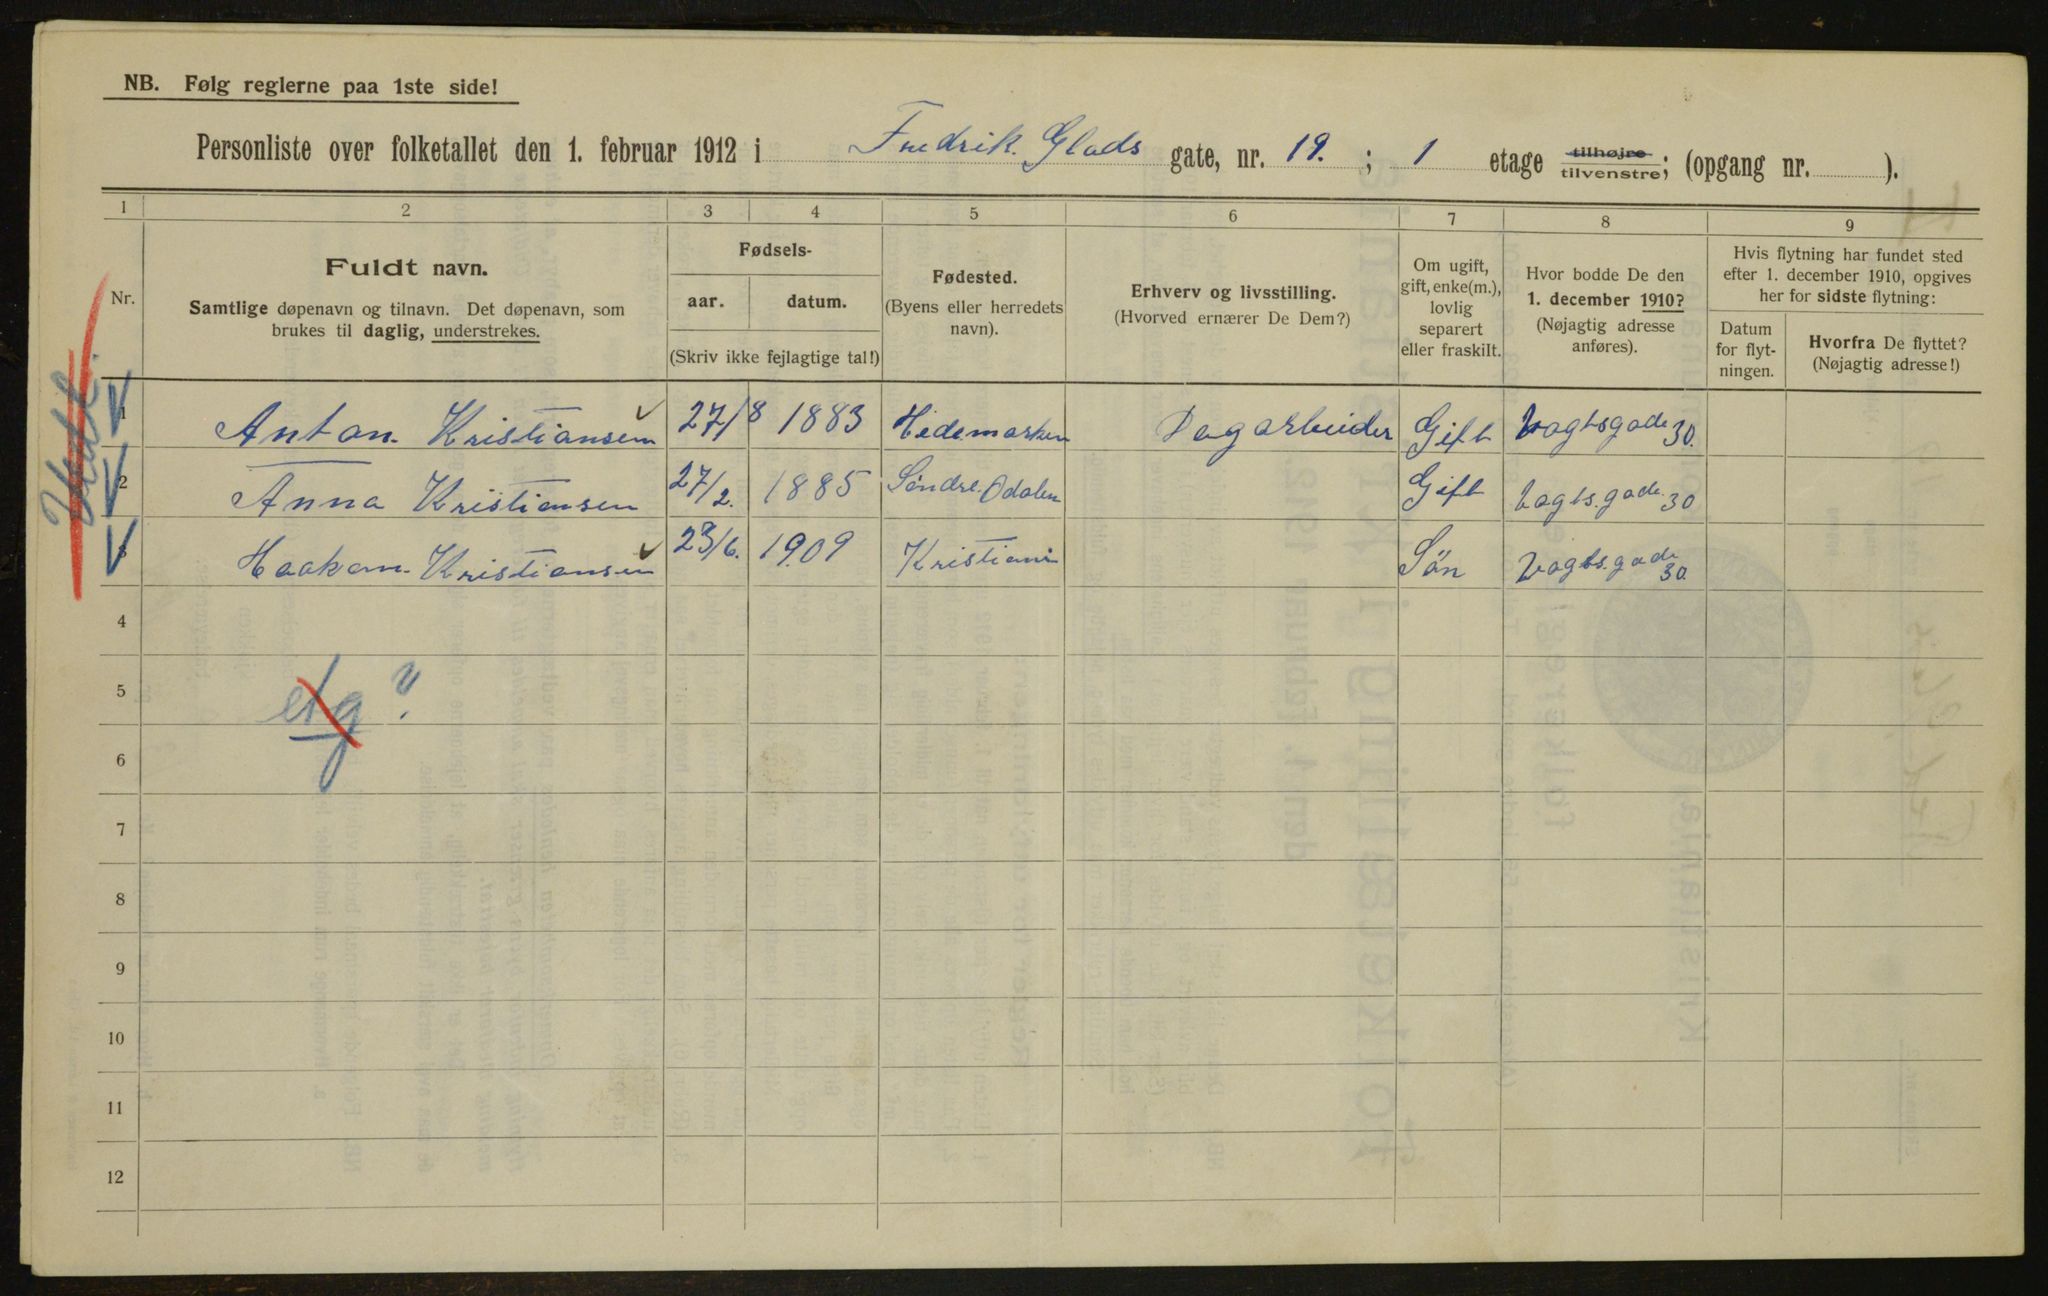 NB. Følg reglerne paa 1ste side!
Personliste over folketallet den 1. februar 1912 i Fredrik. Glads gate, nr. 19. ; 1 etage tilhøjre tilvenstre; (opgang nr. ).
1 2 3 4 5 6 7 8 9
Nr.
Fuldt navn.
Samtlige døpenavn og tilnavn. Det døpenavn, som
brukes til daglig, understrekes.
Fødsels-
aar. datum.
(Skriv ikke fejlagtige tal!)
Fødested.
(Byens eller herredets
navn).
Erhverv og livsstilling.
(Hvorved ernærer De Dem?)
Om ugift,
gift, enke(m.),
lovlig
separert
eller fraskilt.
Hvor bodde De den
1. december 1910?
(Nøjagtig adresse
anføres).
Hvis flytning har fundet sted
efter 1. december 1910, opgives
her for sidste flytning:
Datum
for flyt-
ningen.
Hvorfra De flyttet?
(Nøjagtig adresse!)
1 Anton. Kristiansen 27/8 1883 Hedemarken Dagarbeider Gift Vogtsgade 30.
2 Anna Kristiansen 27/2. 1885 Søndre. Odalen Gift Vogts.gade. 30
3 Haakon. Kristiansen 23/6. 1909 Kristiani Sön Vogts.gade 30.
4
5 etg ?
6
7
8
9
10
11
12